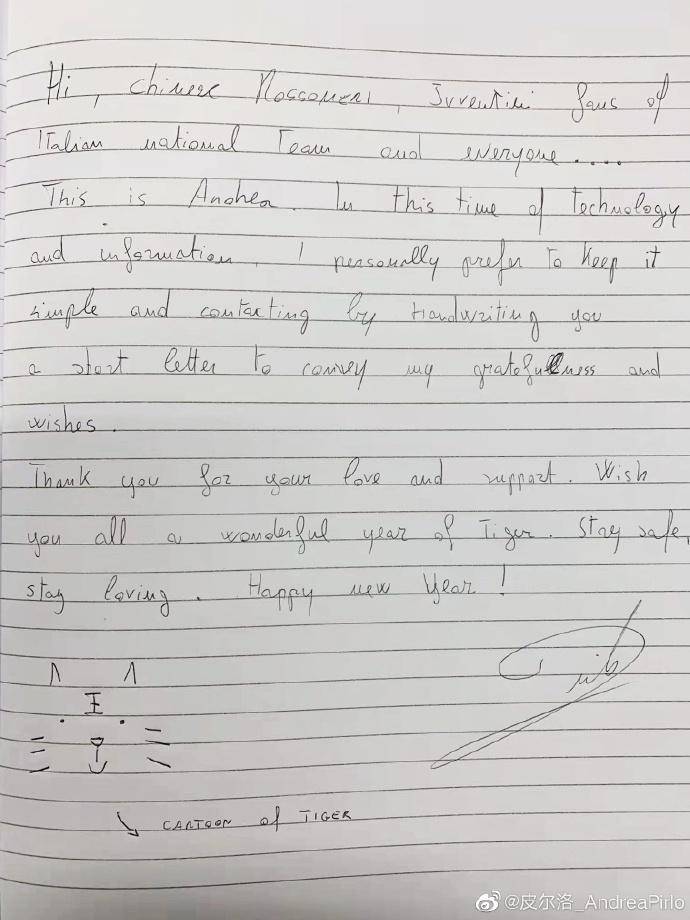 Hi, chinese Rossoneri, Juventini fans of
Italian national Team and everyone....
This is Andrea. In this time of Technology
and information, I personally prefer to keep it
simple and contacting by Handwriting you
a short letter to convey my gratefullness and
wishes.
Thank you for your love and support. Wish
you all a wonderful year of Tiger. Stay safe,
stay loving. Happy new Year!
王
CARTOON of TIGER
@皮尔洛_AndreaPirlo